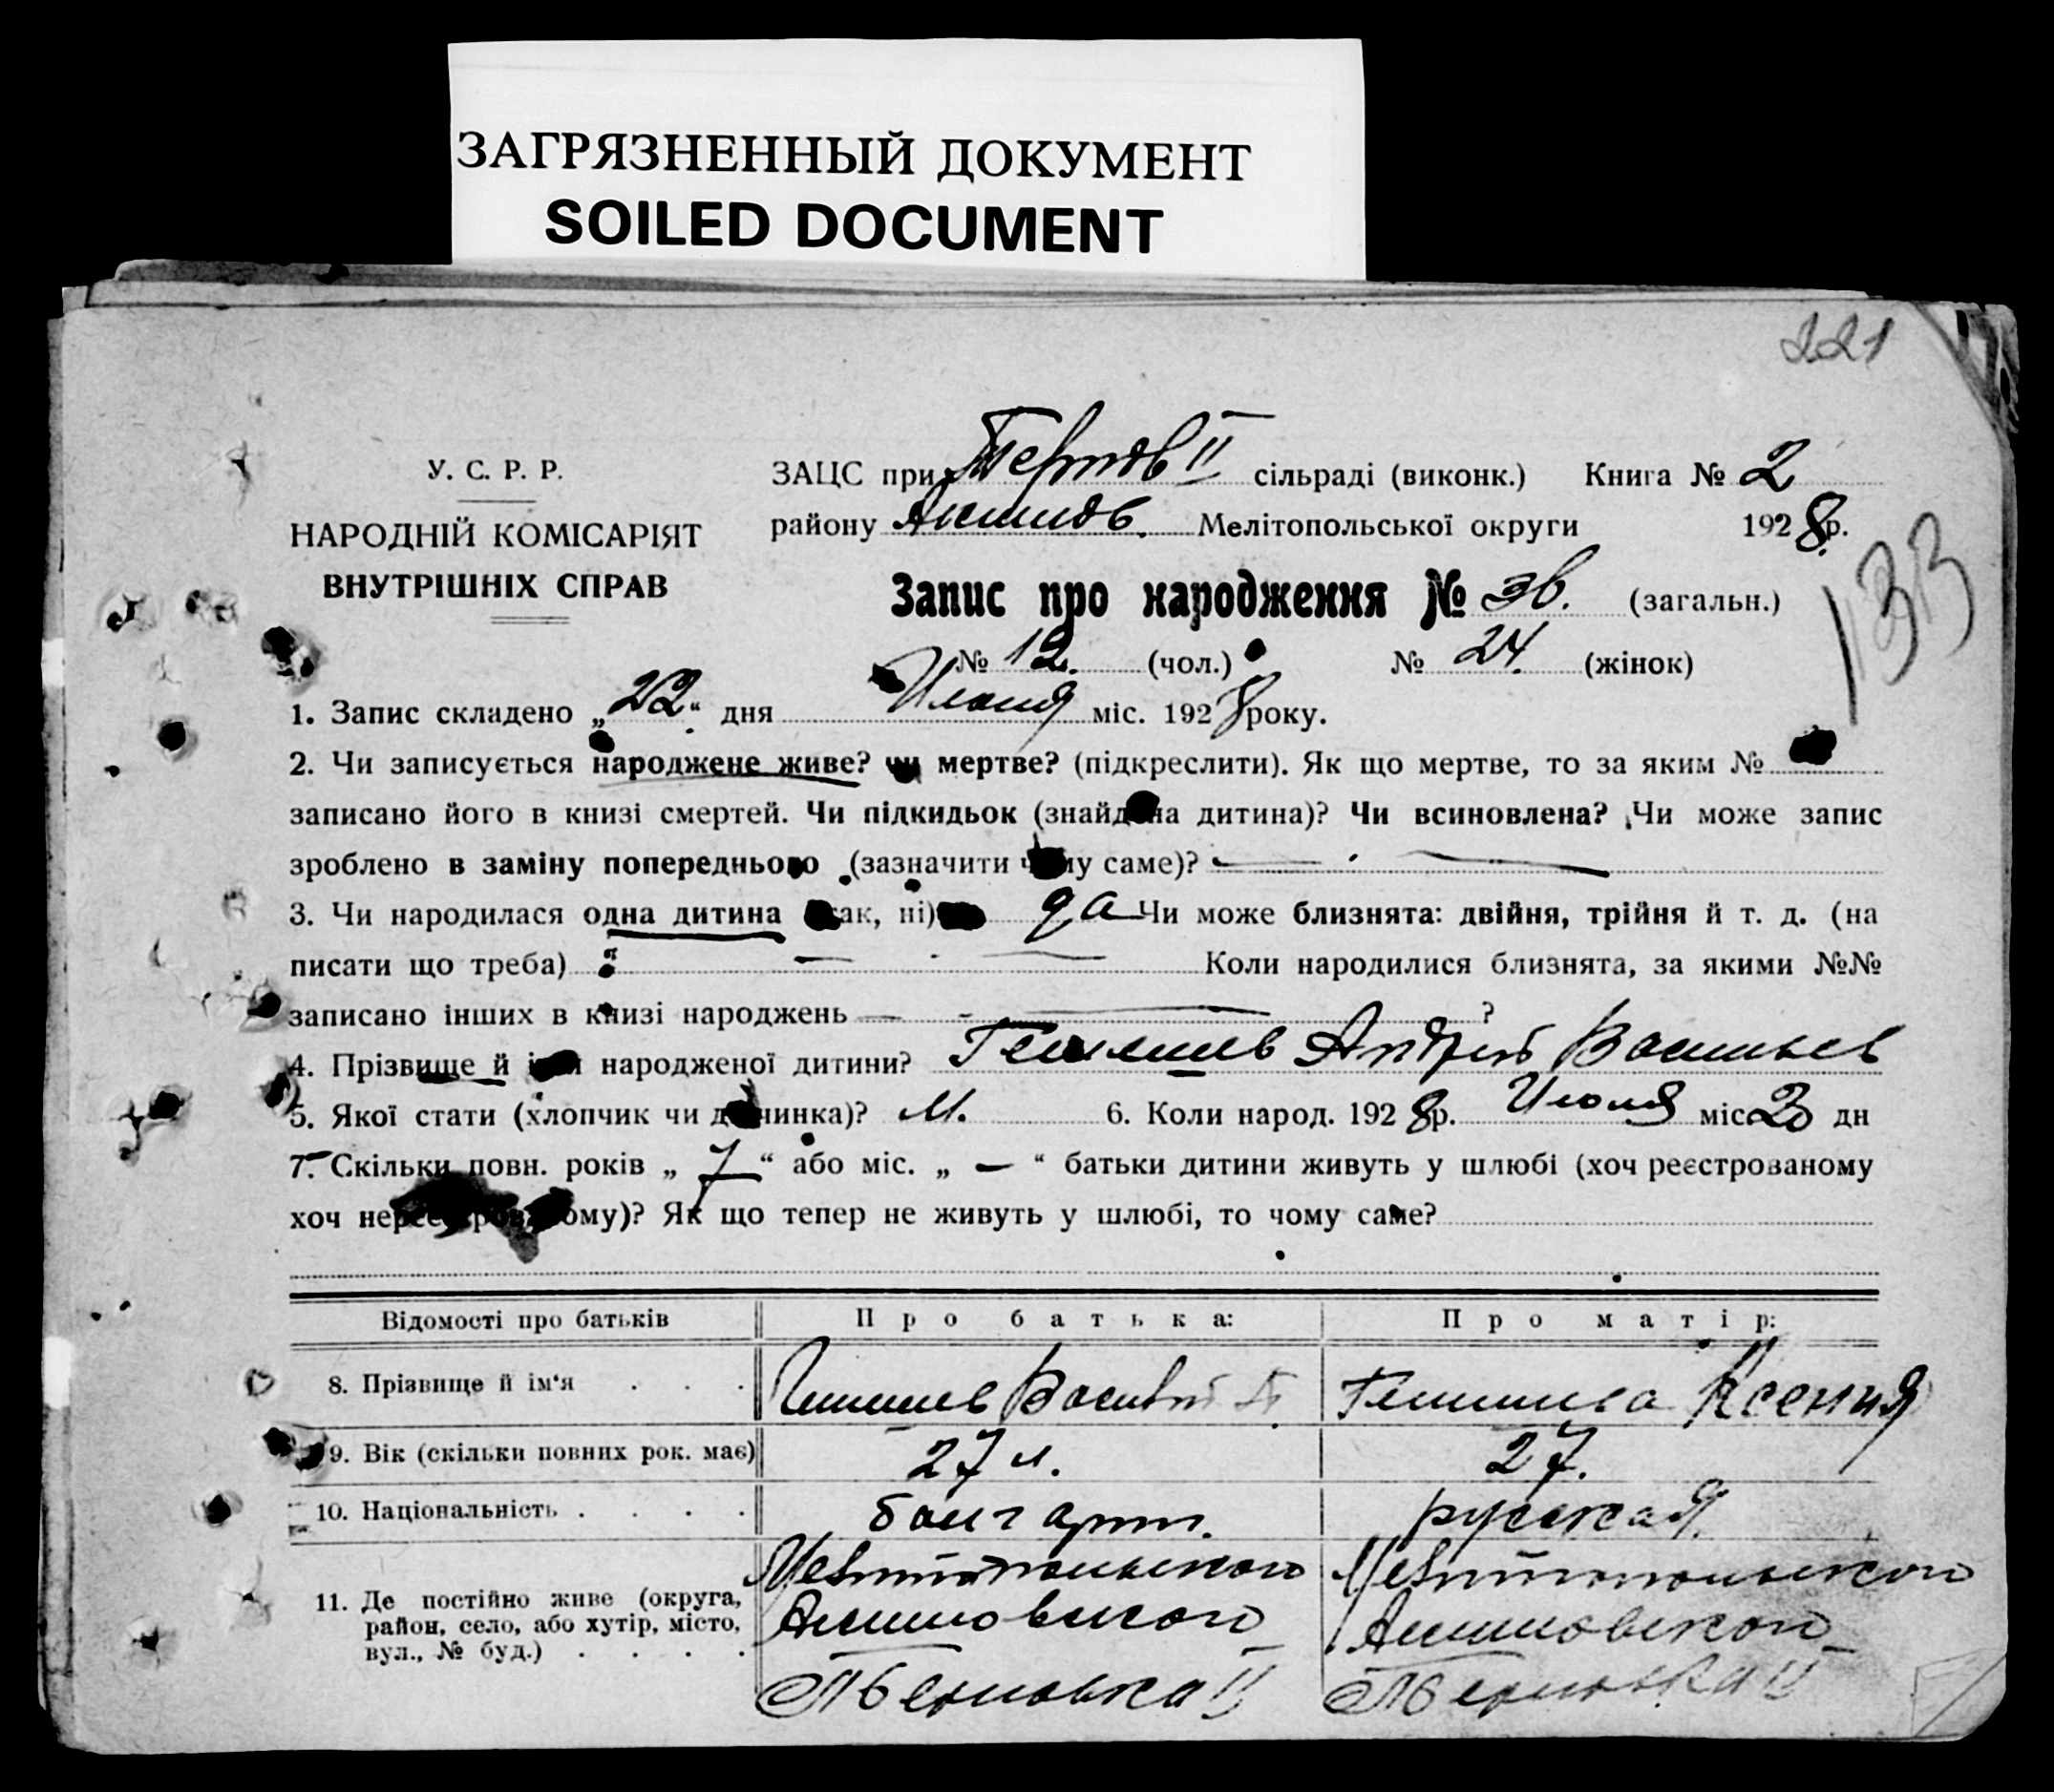 ЗАГРЯЗНЕННЫЙ ДОКУМЕНТ
SOILED DOCUMENT
221
У. С. Р. Р.
НАРОДНІЙ КОМІСАРІЯТ
ВНУТРІШНІХ СПРАВ
ЗАЦС при II сільраді (виконк.) Книга № 2
району Акимов. Мелітопольської округи 1928 р.
133
Запис про народження № (загальн.)
№ 12. (чол.) № 24. (жінок)
1. Запис складено „22“ дня міс. 1928 року.
2. Чи записується народжене живе? чи мертве? (підкреслити). Як що мертве, то за яким №
записано його в книзі смертей. Чи підкидьок (знайдена дитина)? Чи всиновлена? Чи може запис
зроблено в заміну попереднього (зазначити чому саме)?
3. Чи народилася одна дитина (так, ні) да Чи може близнята: двійня, трійня й т. д. (на
писати що треба) Коли народилися близнята, за якими №№
записано інших в книзі народжень — ?
4. Прізвище й ім'я народженої дитини? Андрей Васильев
5. Якої стати (хлопчик чи дівчинка)? М. 6. Коли народ. 1928 р. Июля міс. 20 дн
7. Скільки повн. років „7“ або міс. „—“ батьки дитини живуть у шлюбі (хоч реєстрованому
хоч нереєстрованому)? Як що тепер не живуть у шлюбі, то чому саме?
Відомості про батьків Про батька: Про матір:
8. Прізвище й ім‘я . . . Василий Ксения
9. Вік (скільки повних рок. має) 27 л. 27.
10. Національність . . . . болгарин. русская.
11. Де постійно живе (округа, Мелитопольского Мелитопольского
район, село, або хутір, місто, Акимовского Акимовского
вул., № буд.) . . . . II II